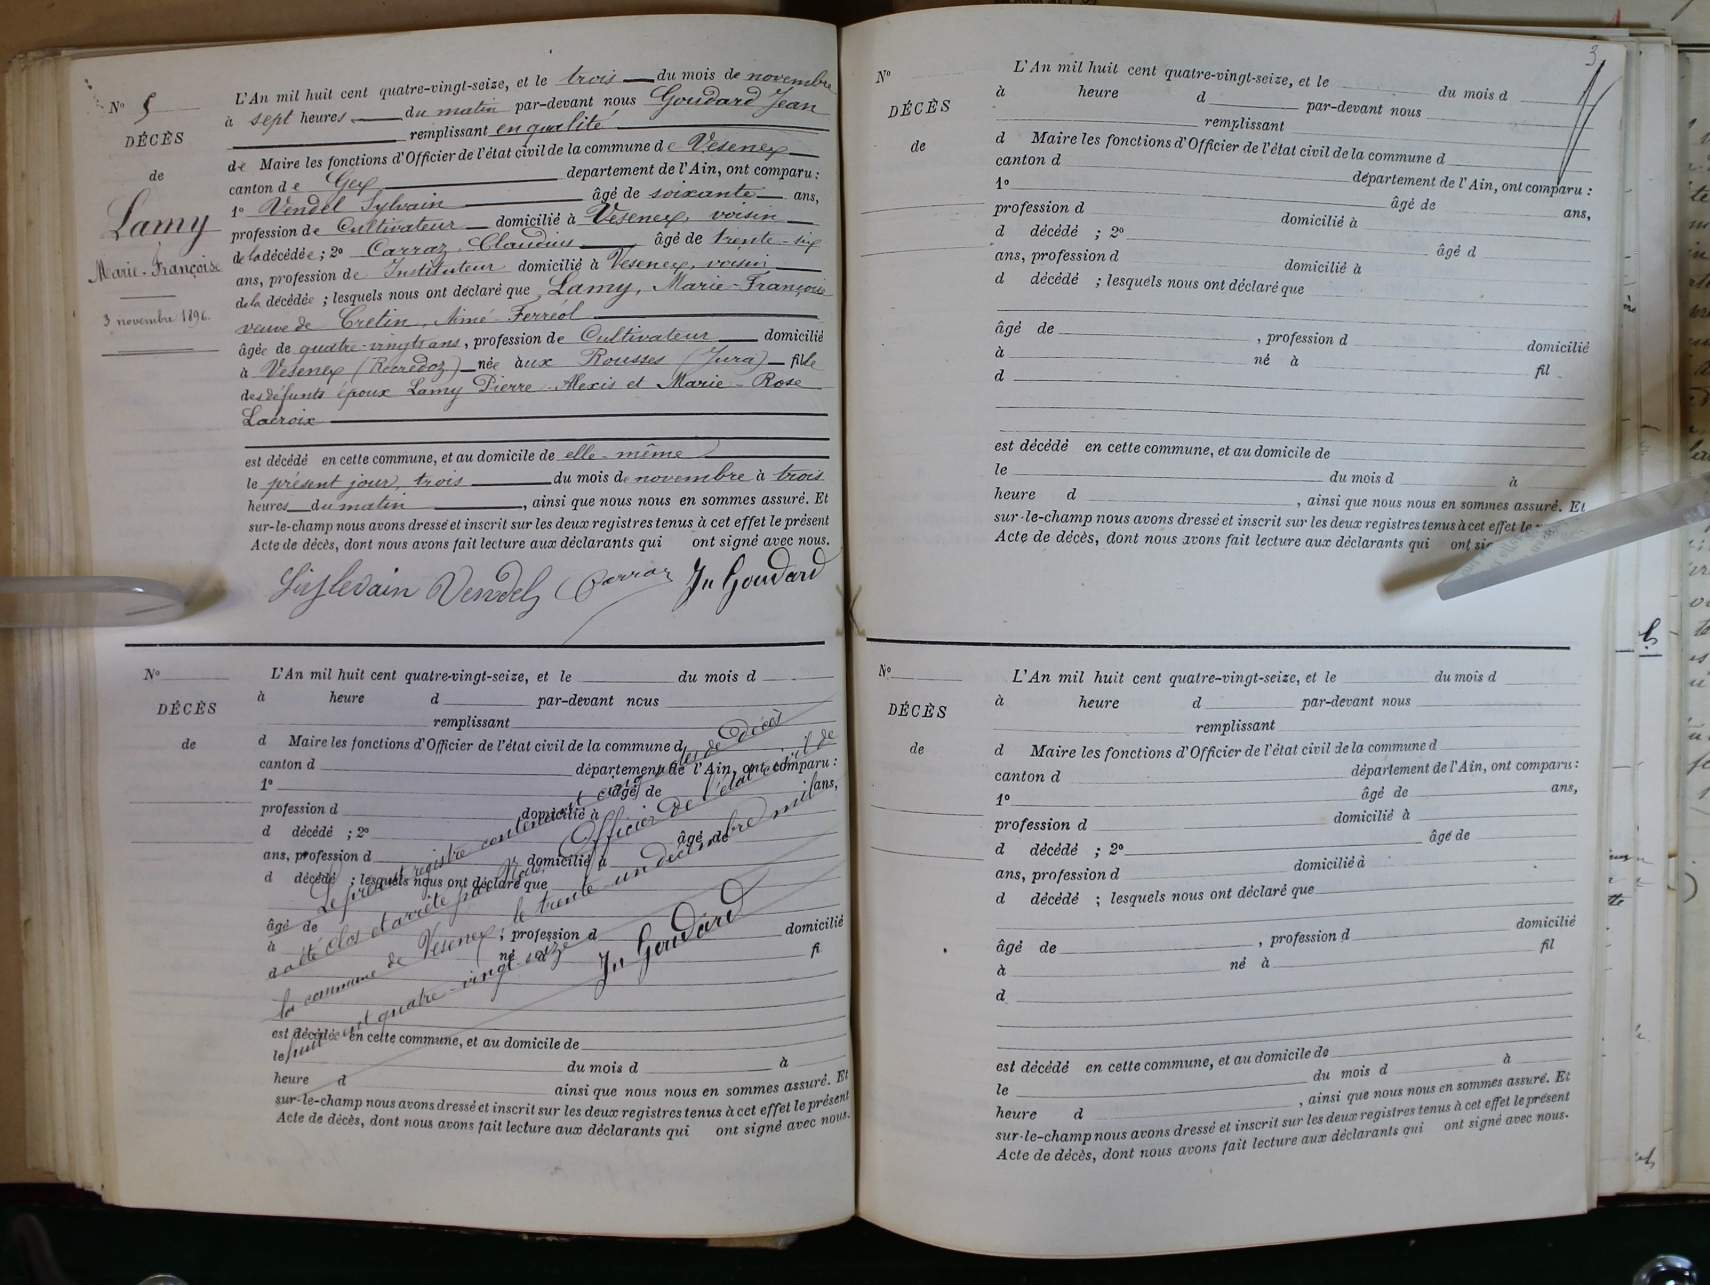 N° 5
DÉCÈS
de
Lamy
Marie-Françoise
3 novembre 1896.
L'An mil huit cent quatre-vingt-seize, et le trois du mois de novembre
à sept heures du matin par-devant nous Goudard Jean
remplissant en qualité
de Maire les fonctions d'Officier de l'état civil de la commune de Vesenex
canton de Gex département de l'Ain, ont comparu :
1° Vendel Sylvain âgé de soixante ans,
profession de Cultivateur domicilié à Vesenex, voisin
de la décédée ; 2° Carraz Claudius âgé de trente-six
ans, profession de Instituteur domicilié à Vesenex, voisin
de la décédée ; lesquels nous ont déclaré que Lamy, Marie-Françoise
veuve de Cretin, Aimé Ferréol
âgée de quatre-vingts ans, profession de Cultivateur domicilié
à Vesenex née aux Rousses (Jura) fille
des défunts époux Lamy Pierre-Alexis et Marie-Rose
Lacroix
est décédé en cette commune, et au domicile de elle-même
le présent jour, trois du mois de novembre à trois
heures du matin, ainsi que nous nous en sommes assuré. Et
sur-le-champ nous avons dressé et inscrit sur les deux registres tenus à cet effet le présent
Acte de décès, dont nous avons fait lecture aux déclarants qui ont signé avec nous.
Vendel Carraz Jn Goudard
N°
DÉCÈS
de
L'An mil huit cent quatre-vingt-seize, et le du mois d
à heure d par-devant nous
remplissant
d Maire les fonctions d'Officier de l'état civil de la commune d
canton d département de l'Ain, ont comparu :
1° âgé de ans,
profession d domicilié à
d décédé ; 2° âgé de
ans, profession d domicilié à
d décédé ; lesquels nous ont déclaré que
âgé de , profession d domicilié
à né à fi
est décédé en cette commune, et au domicile de
le du mois d à
heure d ainsi que nous nous en sommes assuré. Et
sur-le-champ nous avons dressé et inscrit sur les deux registres tenus à cet effet le présent
Acte de décès, dont nous avons fait lecture aux déclarants qui ont signé avec nous.
Le présent registre contenant cinq actes de décès
a été clos et arrêté par Nous, Officier de l'état civil de
la commune de Vesenex, le trente un décembre mil
huit cent quatre-vingt-seize
Jn Goudard
3
N°
DÉCÈS
de
L'An mil huit cent quatre-vingt-seize, et le du mois d
à heure d par-devant nous
remplissant
d Maire les fonctions d'Officier de l'état civil de la commune d
canton d département de l'Ain, ont comparu :
1° âgé de ans,
profession d domicilié à
d décédé ; 2° âgé d
ans, profession d domicilié à
d décédé ; lesquels nous ont déclaré que
âgé de , profession d domicilié
à né à fil
d
est décédé en cette commune, et au domicile de
le du mois d à
heure d , ainsi que nous nous en sommes assuré. Et
sur-le-champ nous avons dressé et inscrit sur les deux registres tenus à cet effet le
Acte de décès, dont nous avons fait lecture aux déclarants qui ont
N°
DÉCÈS
de
L'An mil huit cent quatre-vingt-seize, et le du mois d
à heure d par-devant nous
remplissant
d Maire les fonctions d'Officier de l'état civil de la commune d
canton d département de l'Ain, ont comparu :
1° âgé de ans,
profession d domicilié à
d décédé ; 2° âgé de
ans, profession d domicilié à
d décédé ; lesquels nous ont déclaré que
âgé de , profession d domicilié
à né à fil
d
est décédé en cette commune, et au domicile de
le du mois d à
heure d , ainsi que nous nous en sommes assuré. Et
sur-le-champ nous avons dressé et inscrit sur les deux registres tenus à cet effet le présent
Acte de décès, dont nous avons fait lecture aux déclarants qui ont signé avec nous.